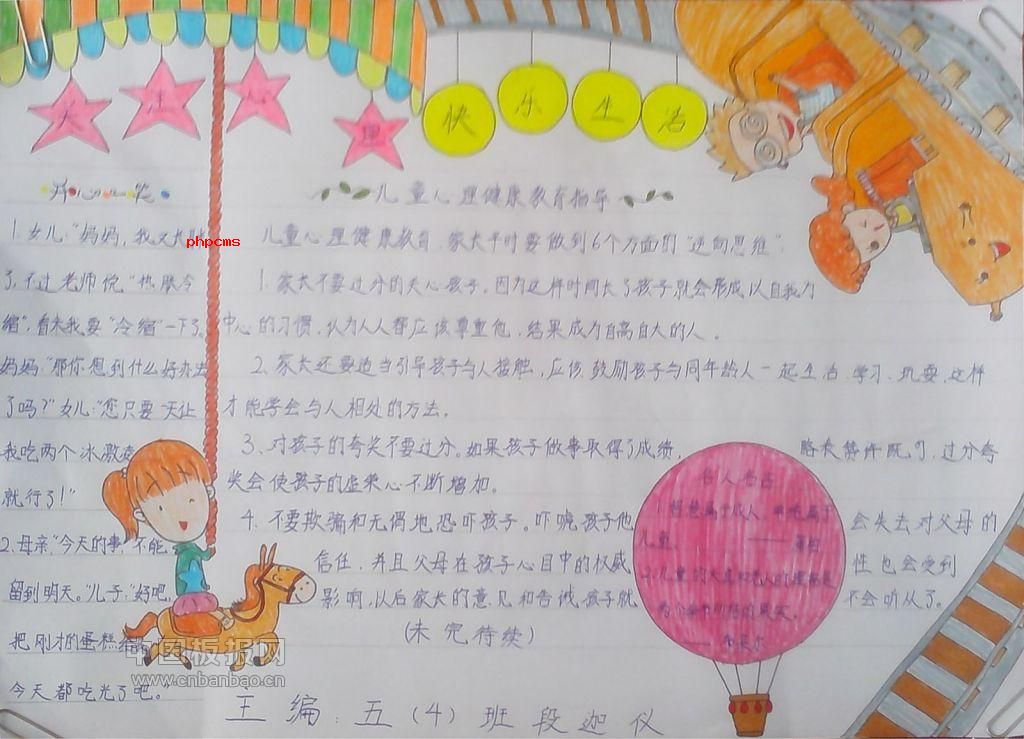 关注心理
快乐生活
开心一笑
1.女儿:“妈妈,我又长胖
了,不过老师说“热胀冷
缩”,看来我要“冷缩”一下了。
妈妈:“那你想到什么好办法
了吗?”女儿:“您只要一天让
我吃两个冰激凌
就行了!”
2.母亲:“今天的事,不能
留到明天。”儿子:“好吧,
把刚才的蛋糕
今天都吃光了吧。
儿童心理健康教育指导
儿童心理健康教育,家长平时要做到6个方面的“逆向思维”:
1.家长不要过分的关心孩子,因为这样时间长了孩子就会形成以自我为
中心的习惯,认为人人都应该尊重他,结果成为自高自大的人。
2.家长还要适当引导孩子与人接触,应该鼓励孩子与同年龄人一起生活、学习、玩耍,这样
才能学会与人相处的方法。
3.对孩子的夸奖不要过分。如果孩子做事取得了成绩,略表赞许既可,过分夸
奖会使孩子的虚荣心不断增加。
4.不要欺骗和无谓地恐吓孩子。吓唬孩子他会失去对父母的
信任,并且父母在孩子心目中的权威性也会受到
影响,以后家长的意见和告诫,孩子就不会听从了。
(未完待续)
名人名言
儿童
主编:五(4)班段迦仪
phpcms
中国板报网
www.cnbanbao.cn